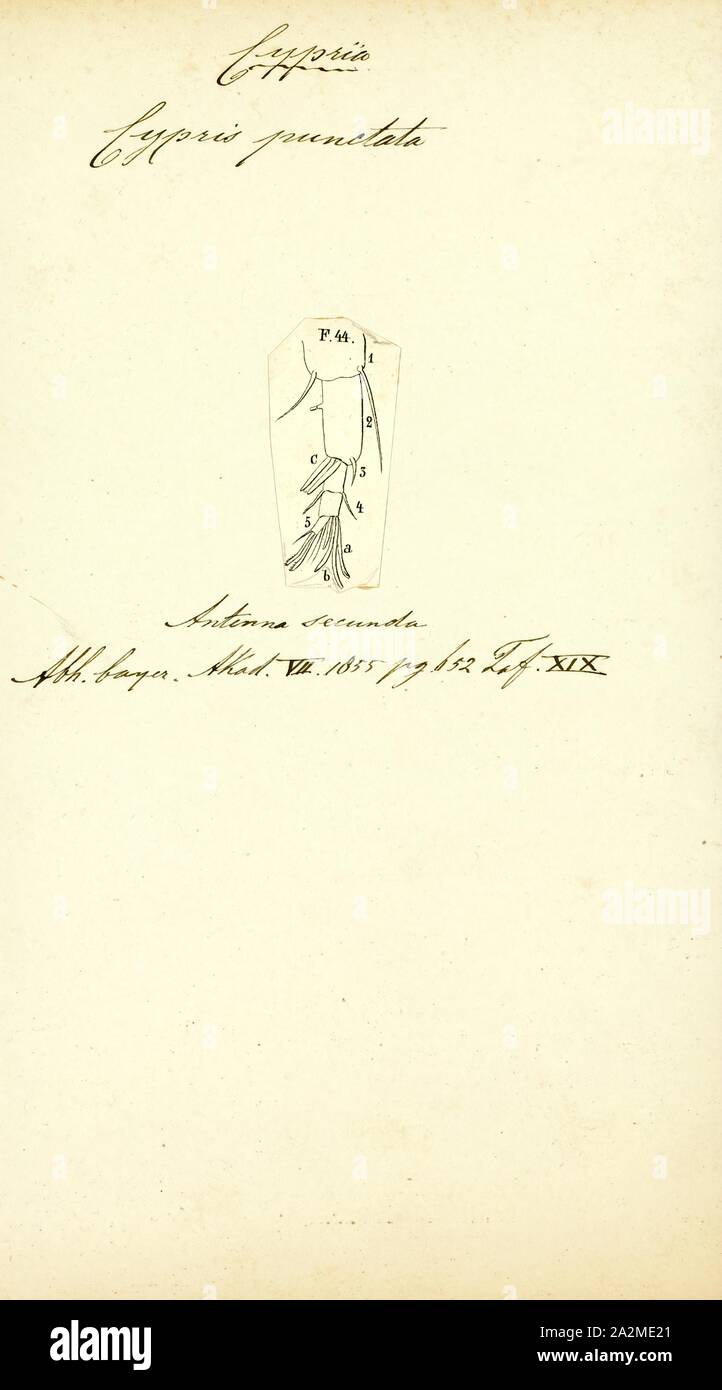 Cypria
Cypris punctata
F. 44.
1
2
C
3
4
5
a
b
Antenna secunda
Abh. bayer. Akad. VII. 1855 pg. 652 Taf. XIX
alamy
alamy
alamy
Image ID: 2A2ME21
www.alamy.com